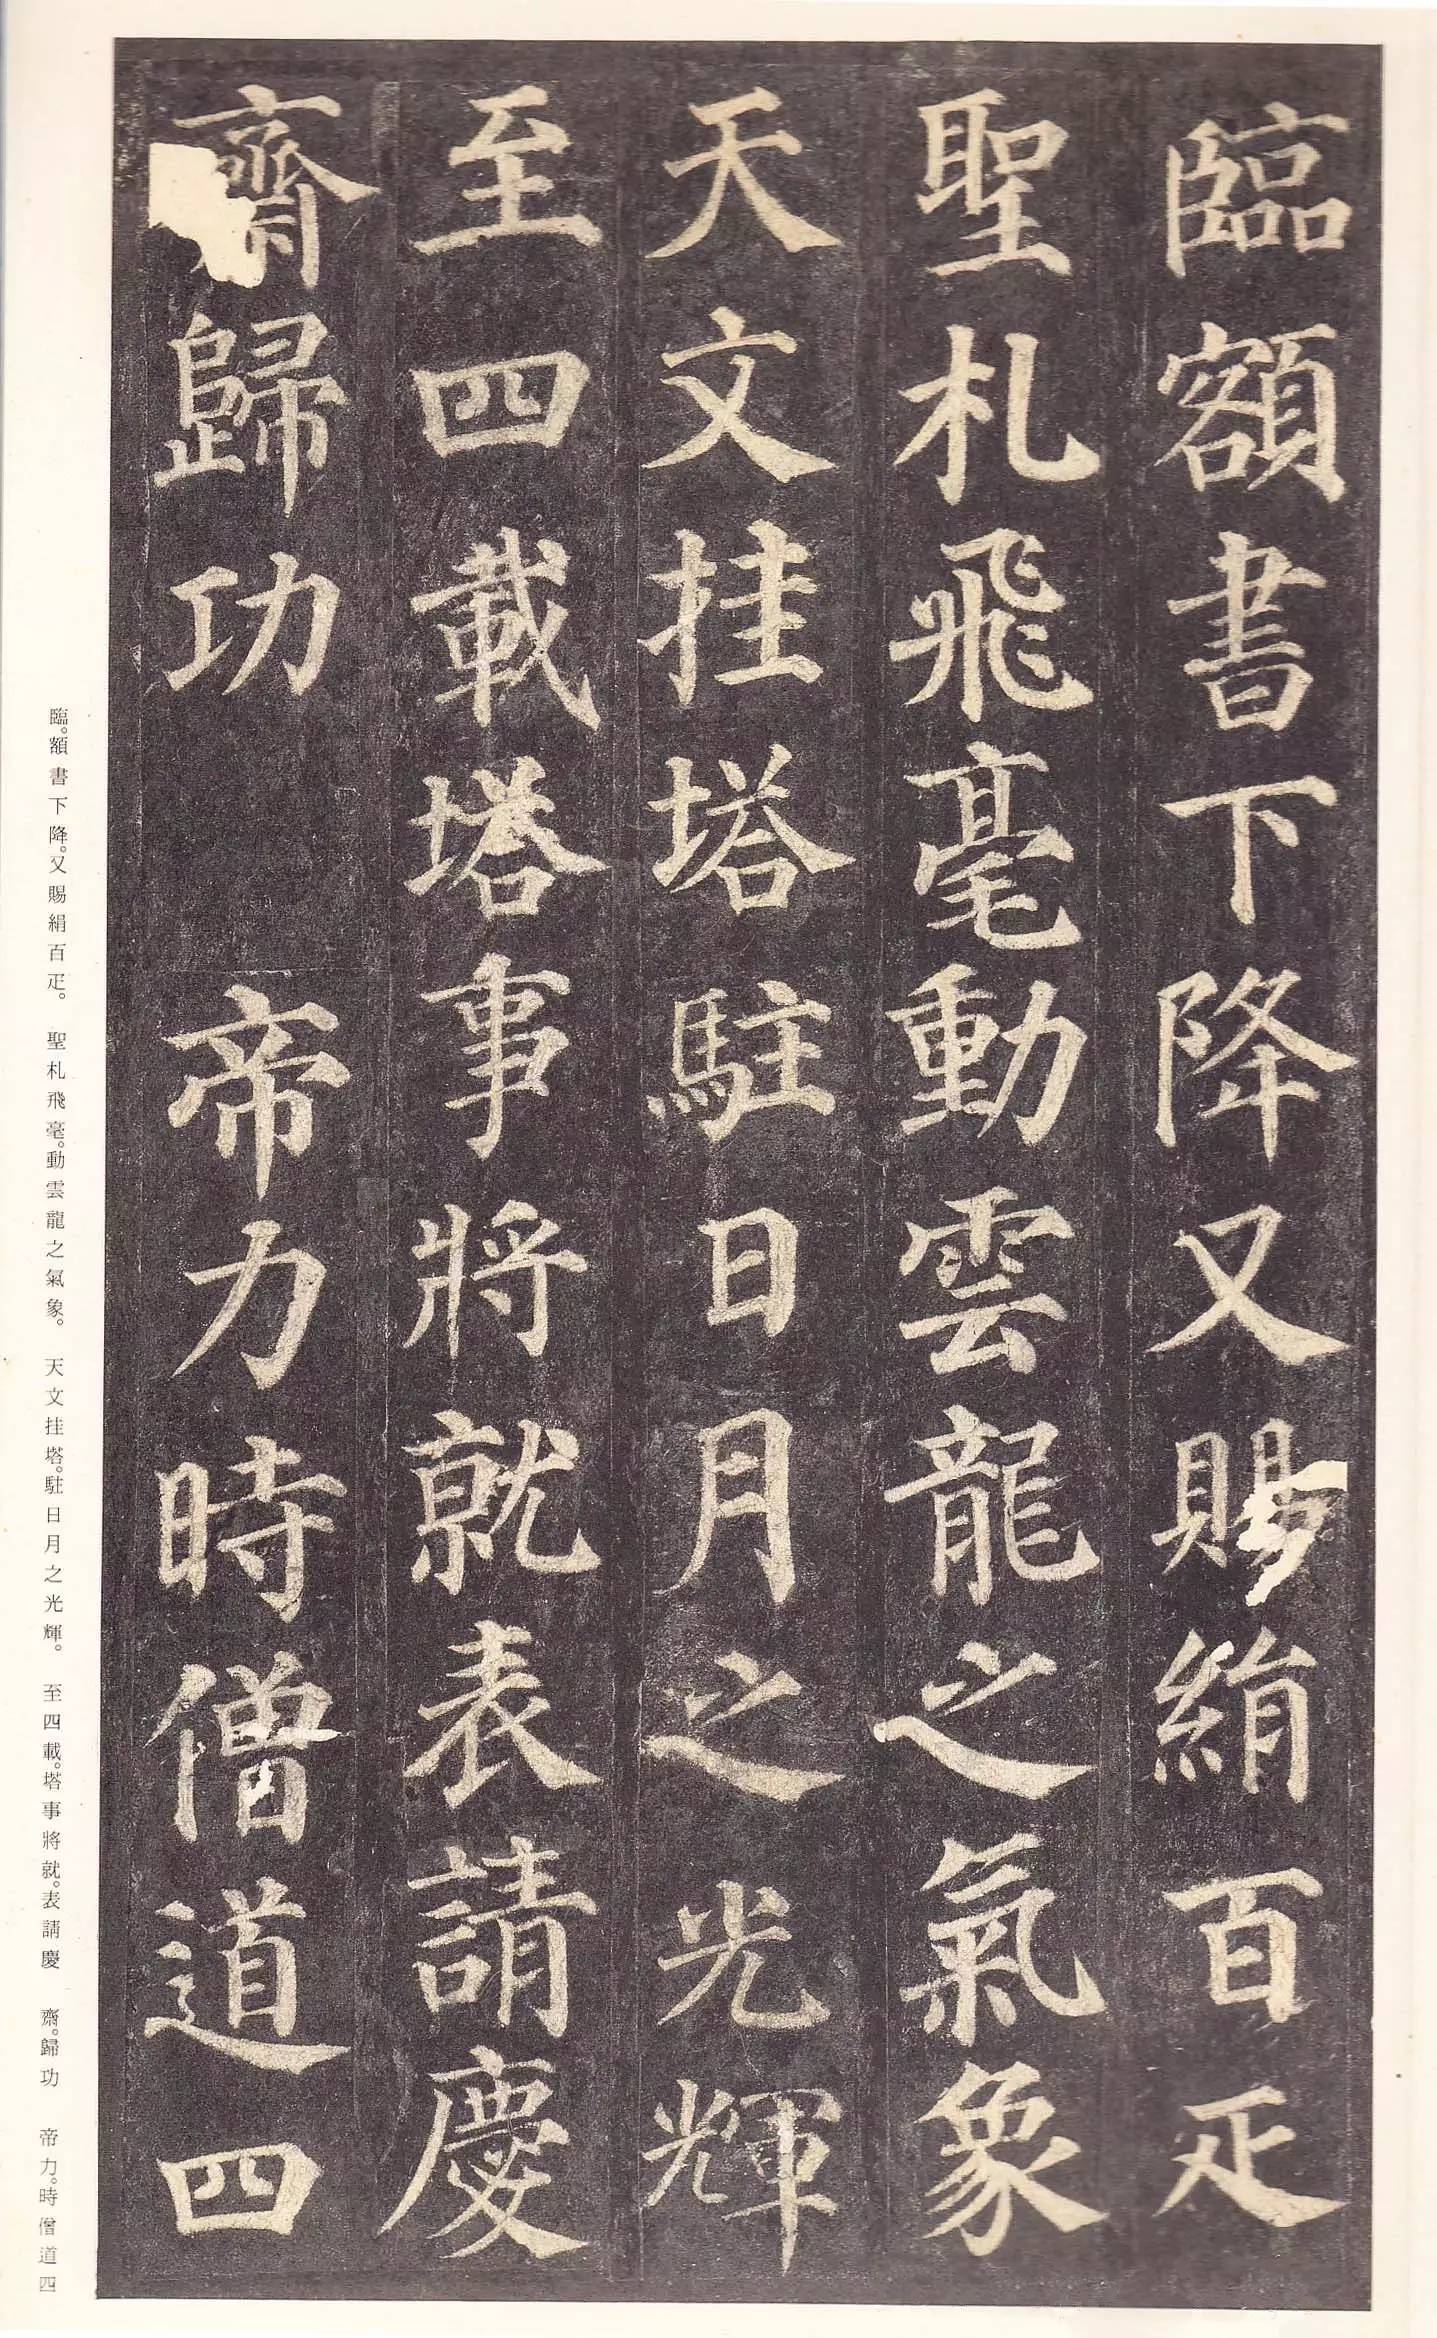 臨額書下降又賜絹百疋
聖札飛毫動雲龍之氣象
天文挂塔駐日月之光輝
至四載塔事將就表請慶
齋歸功 帝力時僧道四
臨。額書下降。又賜絹百疋。 聖札飛毫。動雲龍之氣象。 天文挂塔。駐日月之光輝。 至四載。塔事將就。表請慶 齋。歸功 帝力。時僧道四